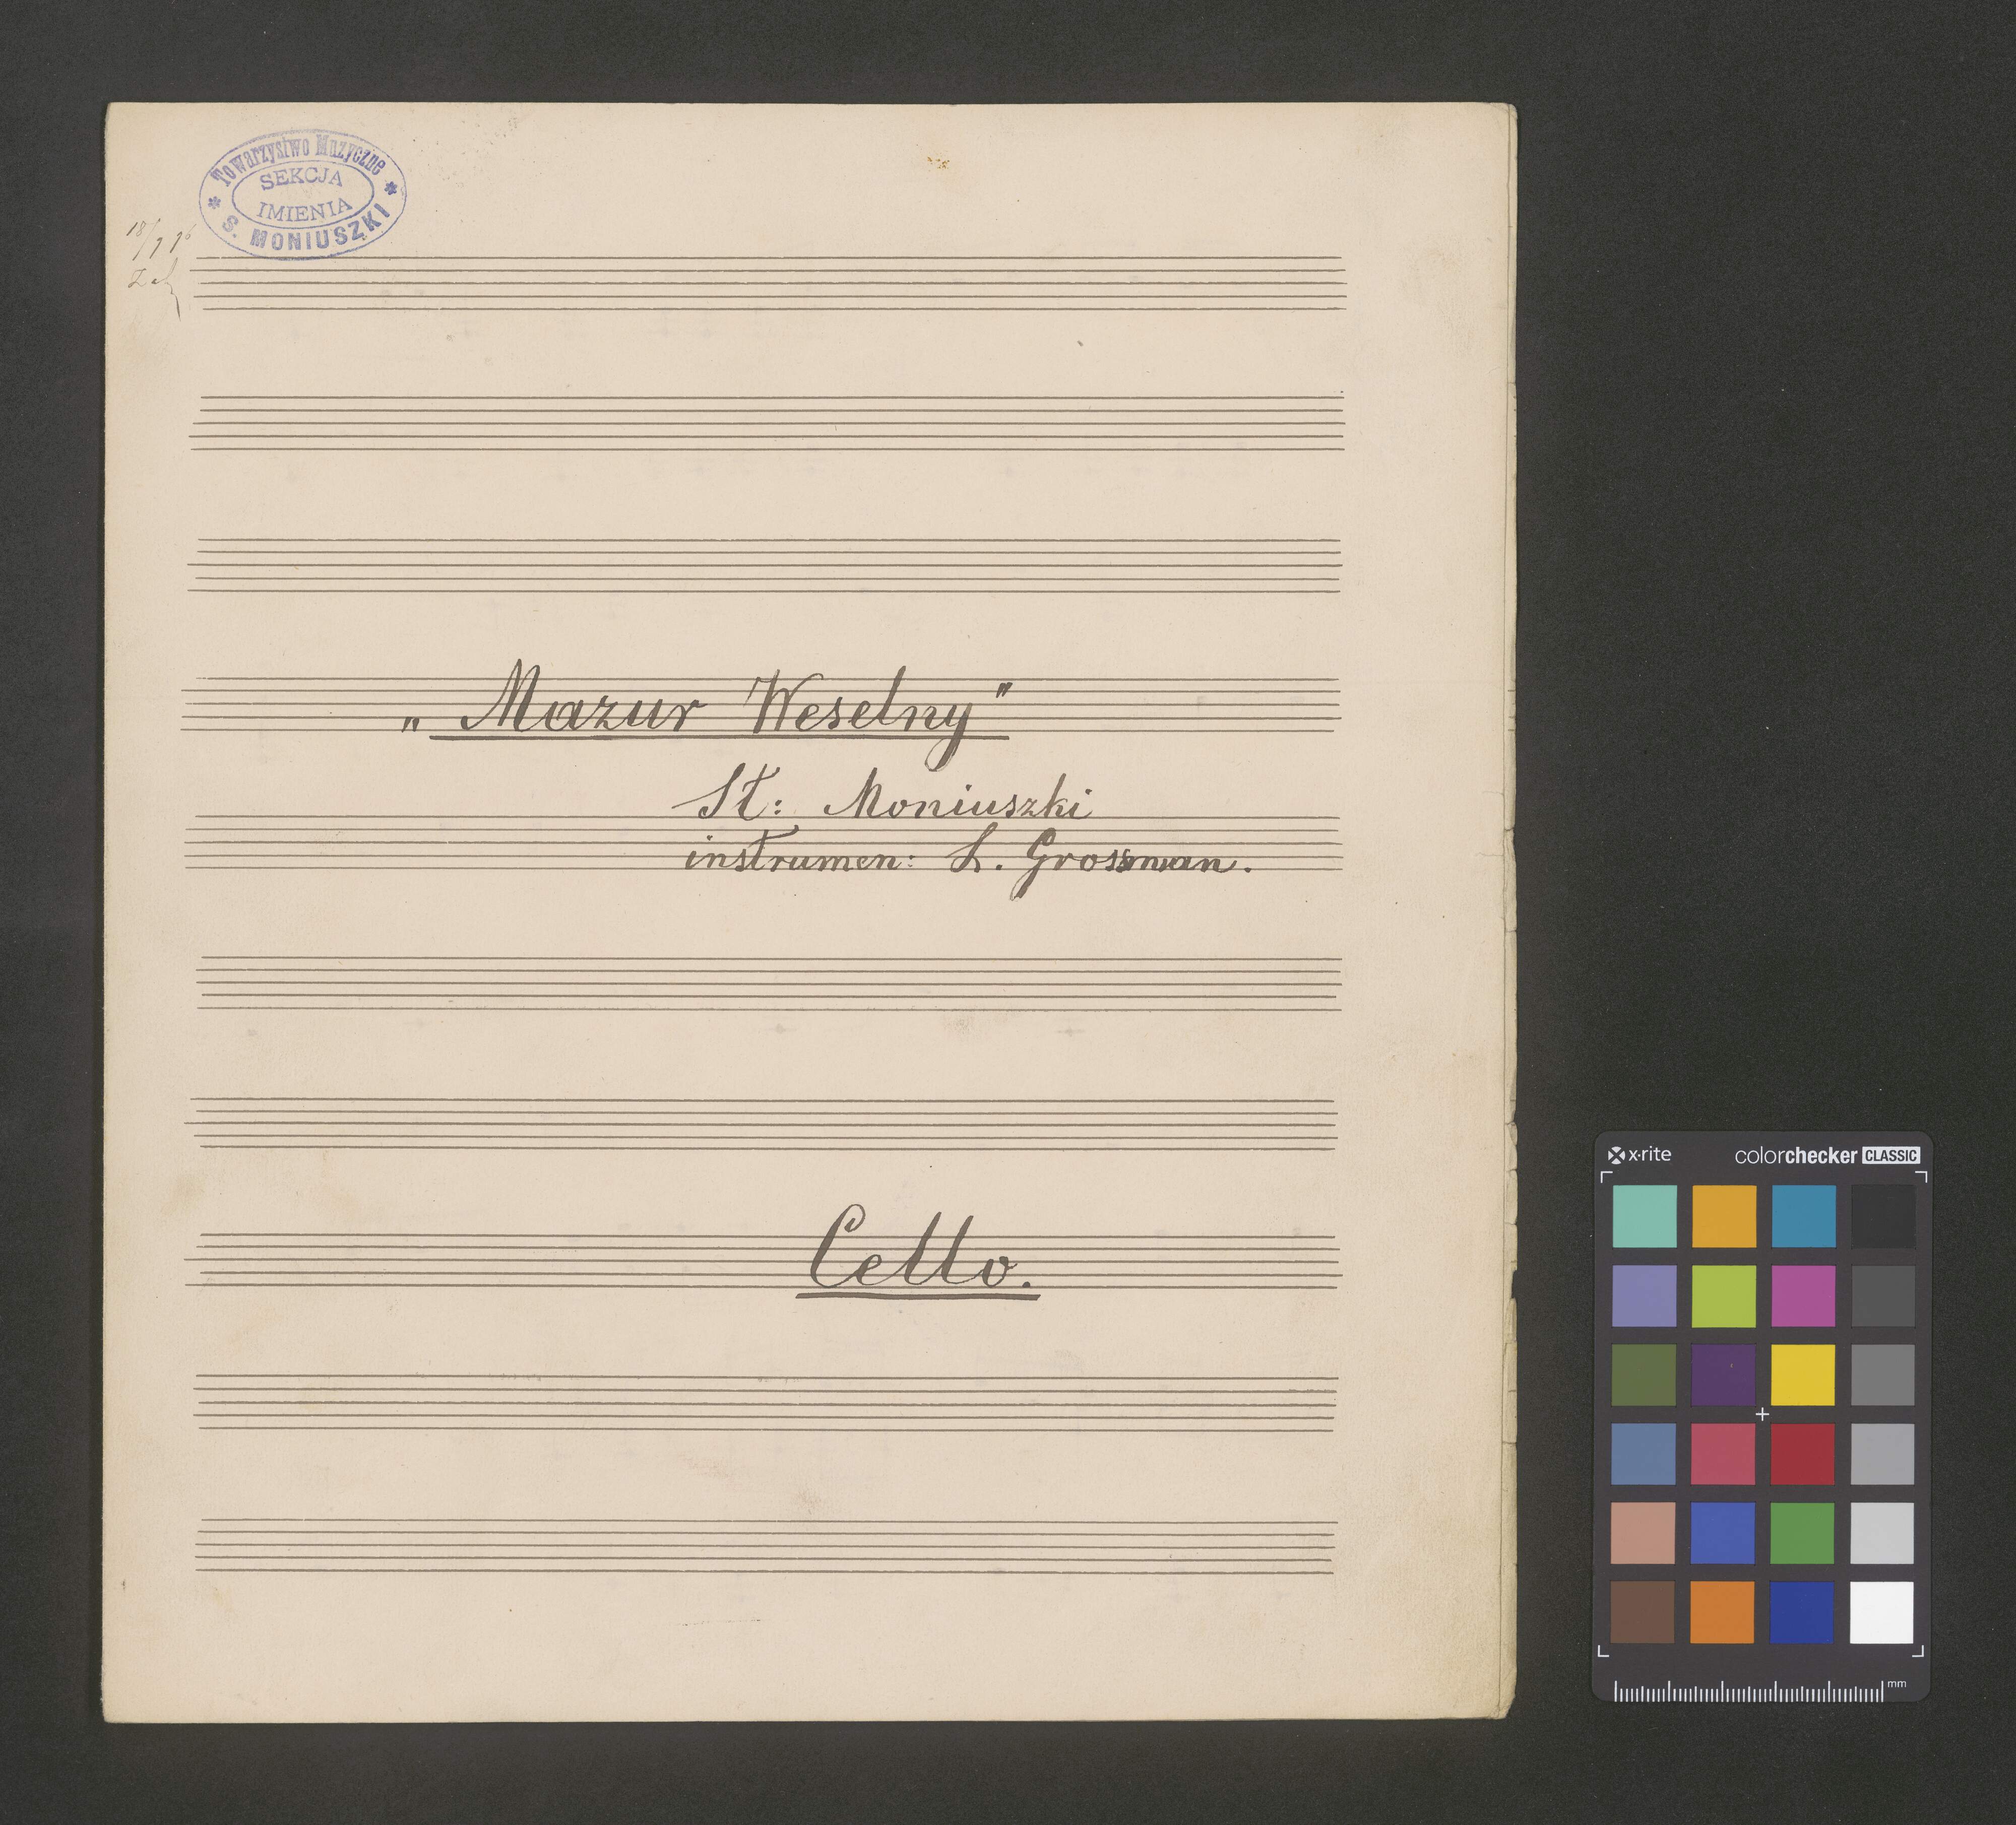 Towarzystwo Muzyczne
SEKCJA
IMIENIA
S. MONIUSZKI
„Mazur Weselny"
St: Moniuszki
instrumen: L. Grossman.
Cello.
x·rite colorchecker CLASSIC
mm